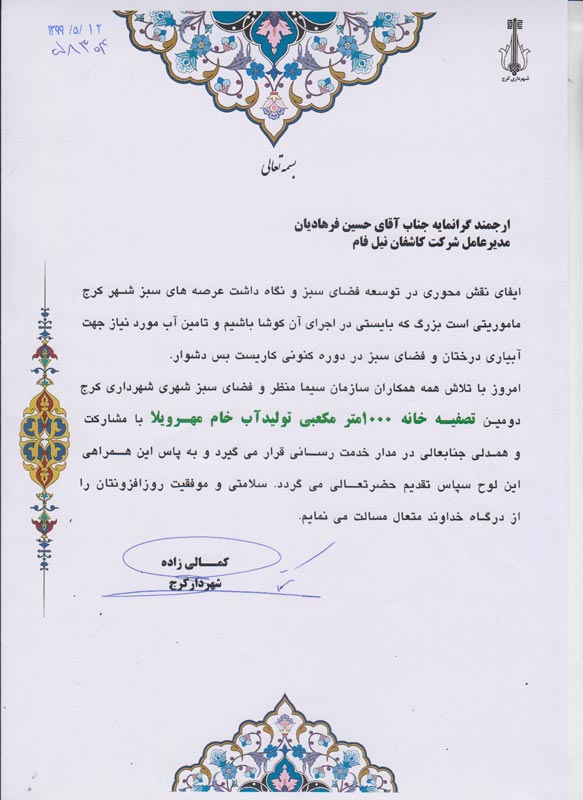 ۱۳۹۹/۵/۱۲
شهرداری کرج
بسمه تعالی
ارجمند گرانمایه جناب آقای حسین فرهادیان
مدیرعامل شرکت کاشفان نیل فام
ایفای نقش محوری در توسعه فضای سبز و نگاه داشت عرصه های سبز شهر کرج
ماموریتی است بزرگ که بایستی در اجرای آن کوشا باشیم و تامین آب مورد نیاز جهت
آبیاری درختان و فضای سبز در دوره کنونی کاریست بس دشوار.
امروز با تلاش همه همکاران سازمان سیما منظر و فضای سبز شهری شهرداری کرج
دومین تصفیه خانه ۱۰۰۰متر مکعبی تولیدآب خام مهرویلا با مشارکت
و همدلی جنابعالی در مدار خدمت رسانی قرار می گیرد و به پاس این همراهی
این لوح سپاس تقدیم حضرتعالی می گردد. سلامتی و موفقیت روزافزونتان را
از درگاه خداوند متعال مسالت می نمایم.
کمالی زاده
شهردارکرج